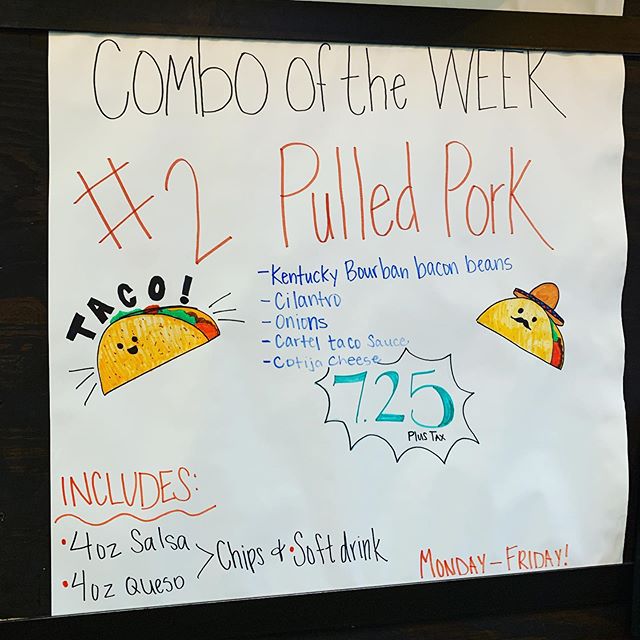 COMBO OF the WEEK
#2 Pulled Pork
TACO!
-Kentucky Bourban bacon beans
-Cilantro
-Onions
-Cartel taco Sauce
-Cotija Cheese
7.25
Plus Tax
INCLUDES:
•4oz Salsa
•4oz Queso
>Chips & •Soft drink
MONDAY-FRIDAY!